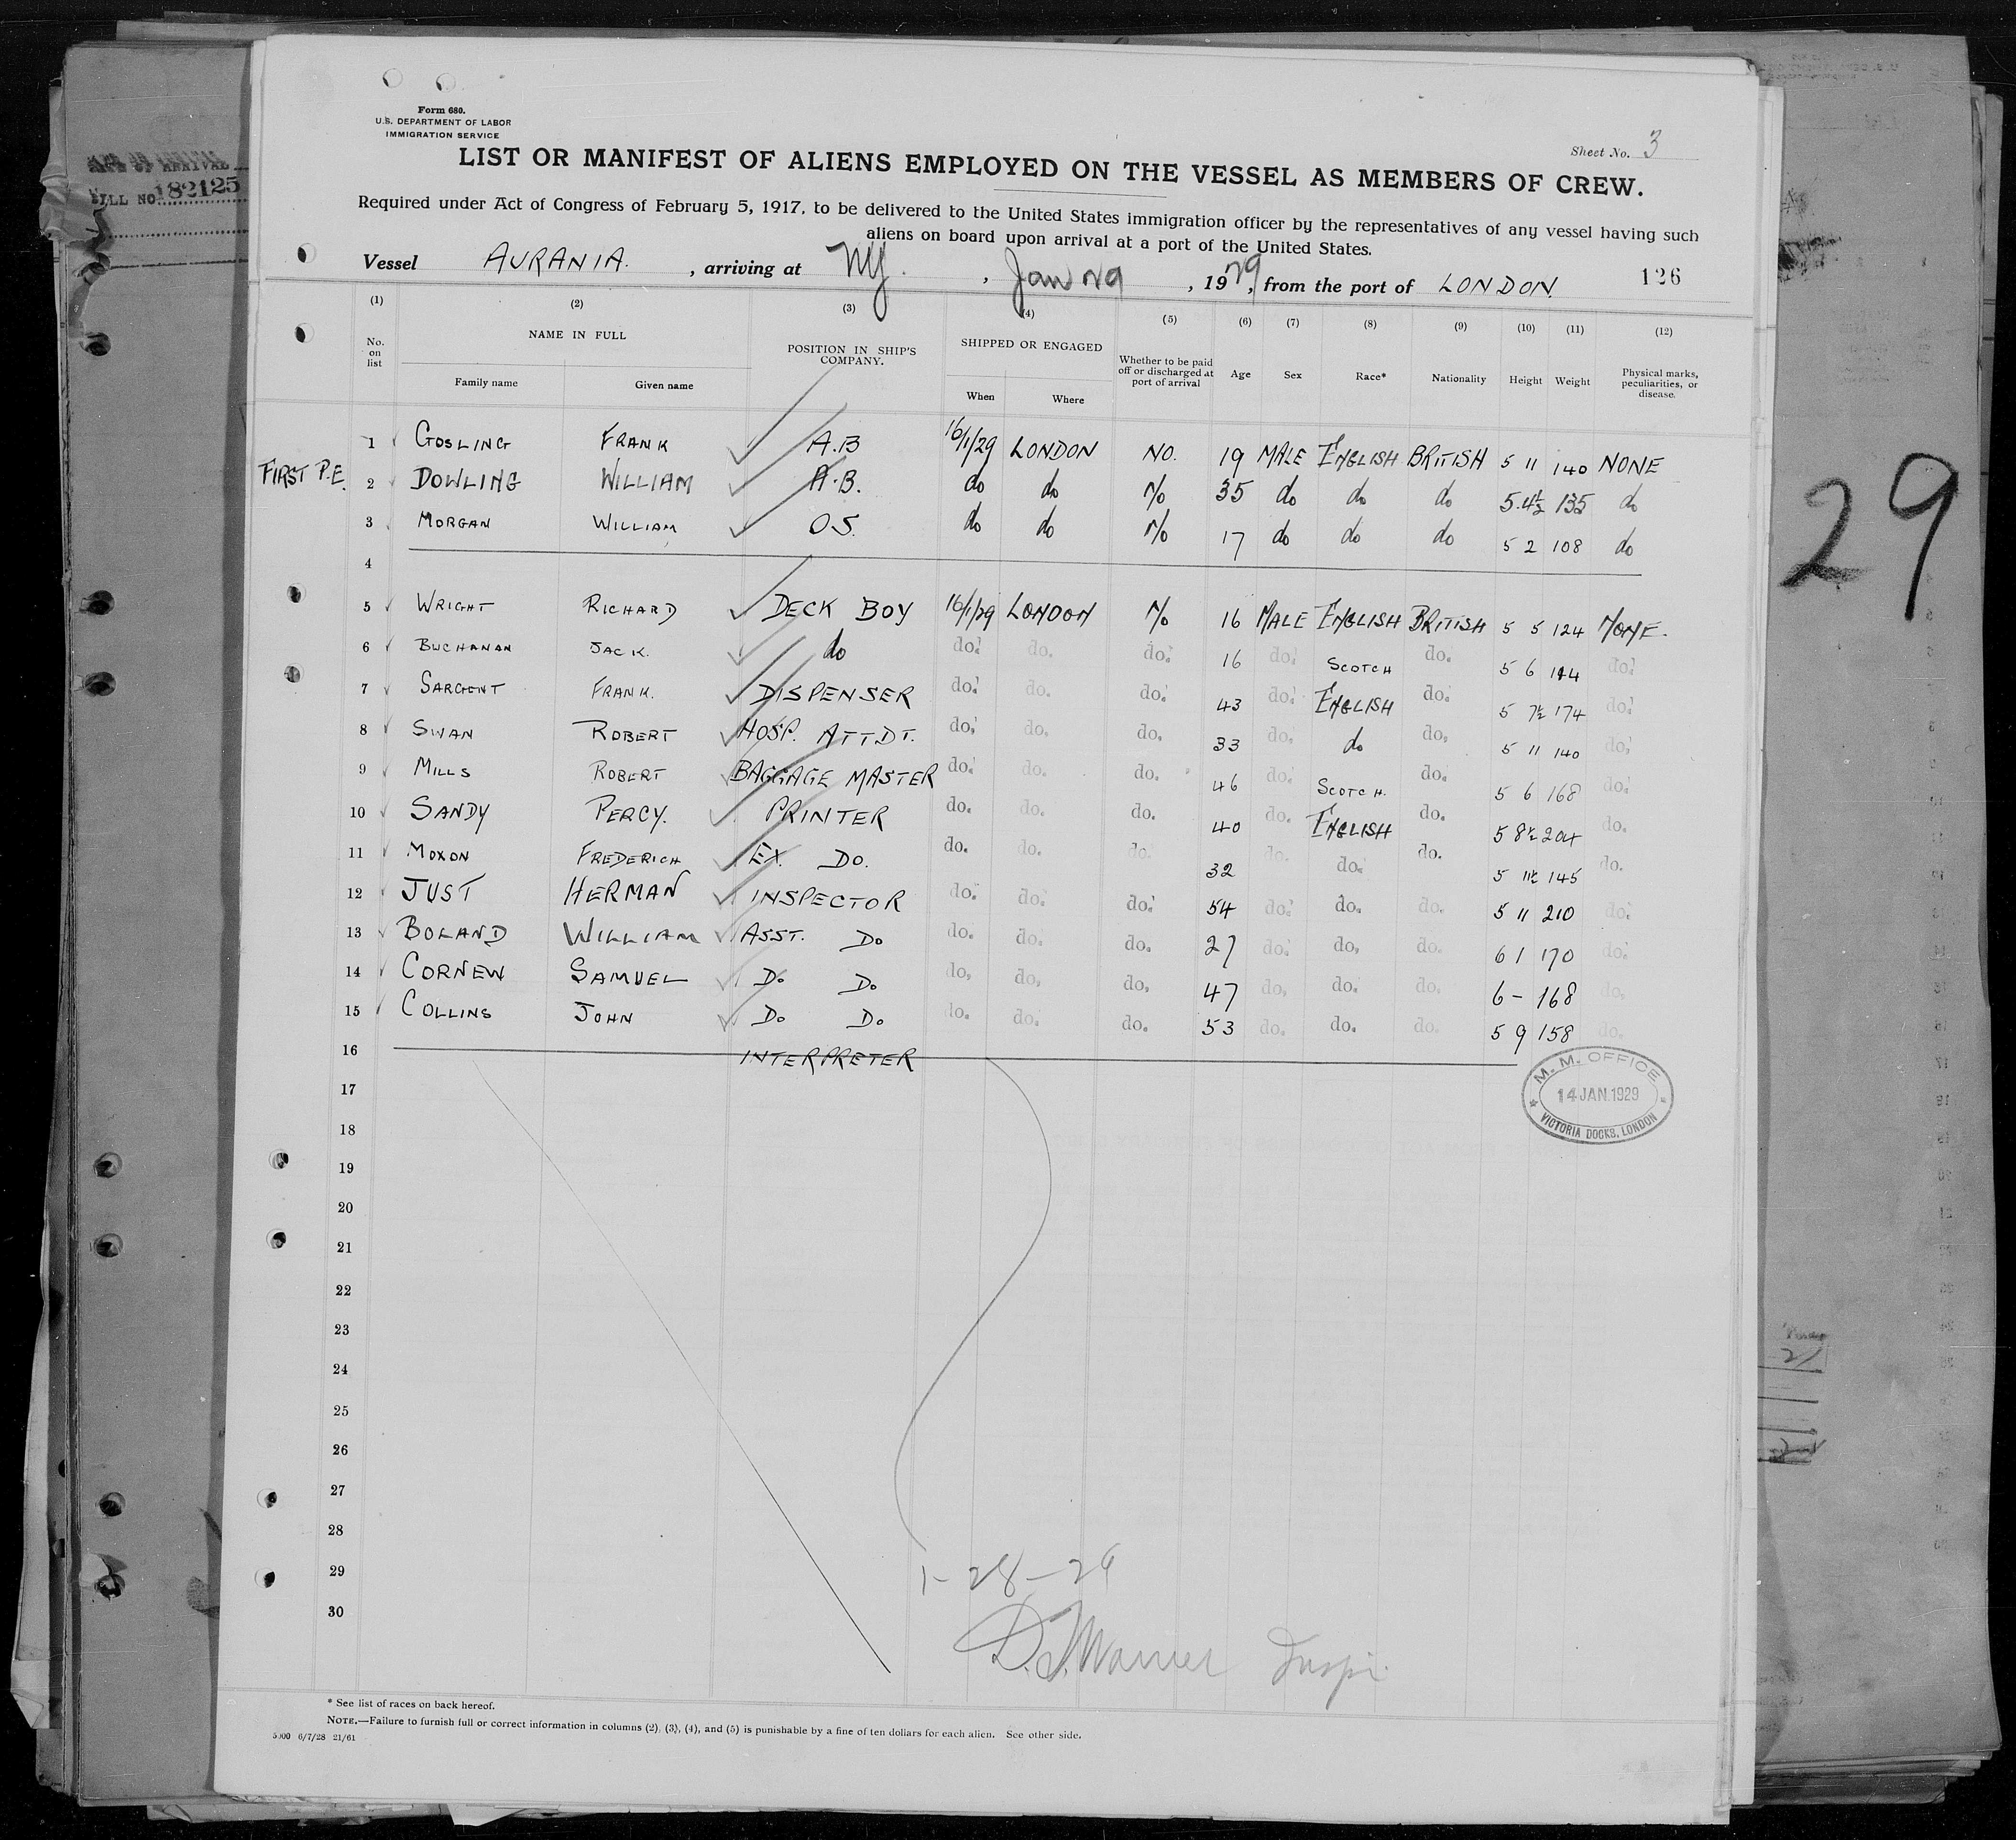 Form 680.
U.S. DEPARTMENT OF LABOR
IMMIGRATION SERVICE
Sheet No. 3
LIST OR MANIFEST OF ALIENS EMPLOYED ON THE VESSEL AS MEMBERS OF CREW.
Required under Act of Congress of February 5, 1917, to be delivered to the United States immigration officer by the representatives of any vessel having such
aliens on board upon arrival at a port of the United States.
Vessel AURANIA. , arriving at NY. , Jan 29 , 1929, from the port of LONDON. 126
(1) (2) (3) (4) (5) (6) (7) (8) (9) (10) (11) (12)
No. on list NAME IN FULL POSITION IN SHIP'S COMPANY. SHIPPED OR ENGAGED Whether to be paid off or discharged at port of arrival Age Sex Race* Nationality Height Weight Physical marks, peculiarities, or disease.
Family name Given name When Where
1 GOSLING FRANK A.B 16/1/29 LONDON NO. 19 MALE ENGLISH BRITISH 5 11 140 NONE
FIRST P.E. 2 DOWLING WILLIAM A.B. do do No 35 do do do 5.4½ 135 do
3 MORGAN WILLIAM O.S. do do No 17 do do do 5 2 108 do
4
5 WRIGHT RICHARD DECK BOY 16/1/29 LONDON No 16 MALE ENGLISH BRITISH 5 5 124 NONE.
6 BUCHANAN JACK. do do. do. do. 16 do. SCOTCH do. 5 6 144 do.
7 SARGENT FRANK. DISPENSER do. do. do. 43 do. ENGLISH do. 5 7½ 174 do.
8 SWAN ROBERT HOSP. ATTDT. do. do. do. 33 do. do do. 5 11 140 do.
9 MILLS ROBERT BAGGAGE MASTER do. do. do. 46 do. SCOTCH. do. 5 6 168 do.
10 SANDY PERCY. PRINTER do. do. do. 40 do. ENGLISH do. 5 8½ 204 do.
11 MOXON FREDERICH EX. DO. do. do. do. 32 do. do. do. 5 11½ 145 do.
12 JUST HERMAN INSPECTOR do. do. do. 54 do. do. do. 5 11 210 do.
13 BOLAND WILLIAM ASST. DO do. do. do. 27 do. do. do. 6 1 170 do.
14 CORNEW SAMUEL DO DO do. do. do. 47 do. do. do. 6 - 168 do.
15 COLLINS JOHN DO DO do. do. do. 53 do. do. do. 5 9 158 do.
16 INTERPRETER
M. M. OFFICE
14 JAN. 1929
VICTORIA DOCKS, LONDON
17
18
19
20
21
22
23
24
25
26
27
28
29
30
1-28-29
D. J. Warner Inspr.
* See list of races on back hereof.
NOTE.—Failure to furnish full or correct information in columns (2), (3), (4), and (5) is punishable by a fine of ten dollars for each alien. See other side.
5000 6/7/28 21/61
ARRIVAL
182125
29